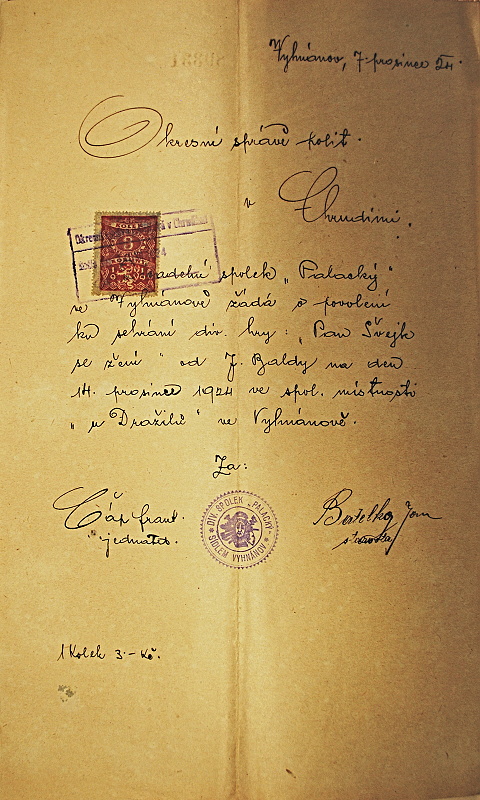 Vyhnánov, 7. prosince 24.
Okresní správě polit.
v Chrudimi.
KOLEK
3
KORUNY
Okresní v Chrudimi
Divadelní spolek „Palacký"
ve Vyhnanově žádá o povolení
ku sehrání div. hry: „Pan Švejk
se žení" od J. Baldy na den
14. prosince 1924 ve spol. místnosti
„u Dražilů" ve Vyhnánově.
Za:
Čáp frant.
jednatel.
DIV. SPOLEK „PALACKÝ"
SÍDLEM VYHNÁNOV
Bertelka Jan
starosta
1 Kolek 3.- Kč.